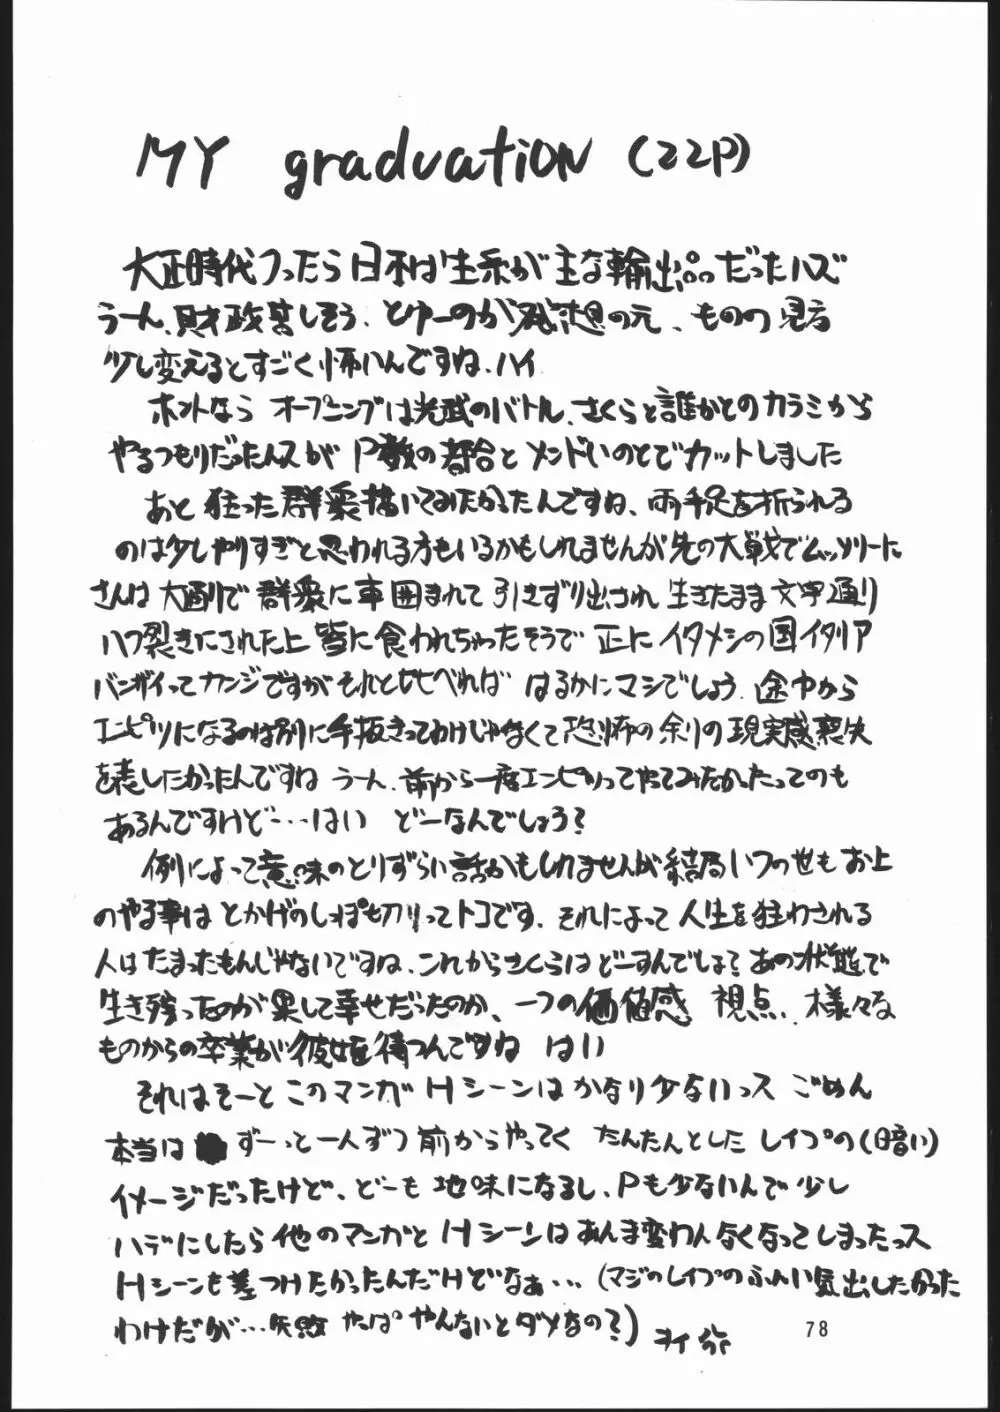 MY graduation (22P)
大正時代つったら日本は生糸が主な輸出品だったハズ
うーん、財政苦しそう、とゆーのが発想の元、ものの見方
少し変えるとすごく怖いんですね、ハイ
ホントなら オープニングは光武のバトル、さくらと誰かとのカラミから
やるつもりだったんスが P数の都合と メンドいのとでカットしました
あと 狂った群衆描いてみたかったんですね、両手足を折られる
のは少しやりすぎと思われる方もいるかもしれませんが先の大戦でムッソリーニ
さんは 大通りで 群衆に車囲まれて 引きずり出され 生きたまま文字通り
ハツ裂きにされた上 皆に食われちゃったそうで 正に イタメシの国イタリア
バンザイってカンジですが それと比べれば はるかにマシでしょう、途中から
エンピツになるのは別に手抜きってわけじゃなくて恐怖の余りの現実感喪失
を表したかったんですね うーん、前から一度エンピツってやってみたかったってのも
あるんですけどー…はい どーなんでしょう？
例によって意味のとりずらい話かもしれませんが結局いつの世もお上
のやる事は とかげのしっぽ切りってトコです、それによって人生を狂わされる
人はたまったもんじゃないですね、これからさくらはどーすんでしょ？あの状態で
生き残ったのが果して幸せだったのか、一つの価値感 視点、様々な
ものからの卒業が彼女を待つんですね はい
それはそーと このマンガ Hシーンは かなり少ないっス ごめん
本当は ずーっと一人ずつ前からやってく たんたんとした レイプの(暗い)
イメージだったけど、どーも 地味になるし、Pも少ないんで 少し
ハデにしたら他のマンガと Hシーンはあんま変わんなくなってしまったっス
Hシーンも差つけたかったんだけどなぁ…(マジのレイプのふんい気出したかった
わけだが…失敗 やっぱ やんないとダメなの？)
78